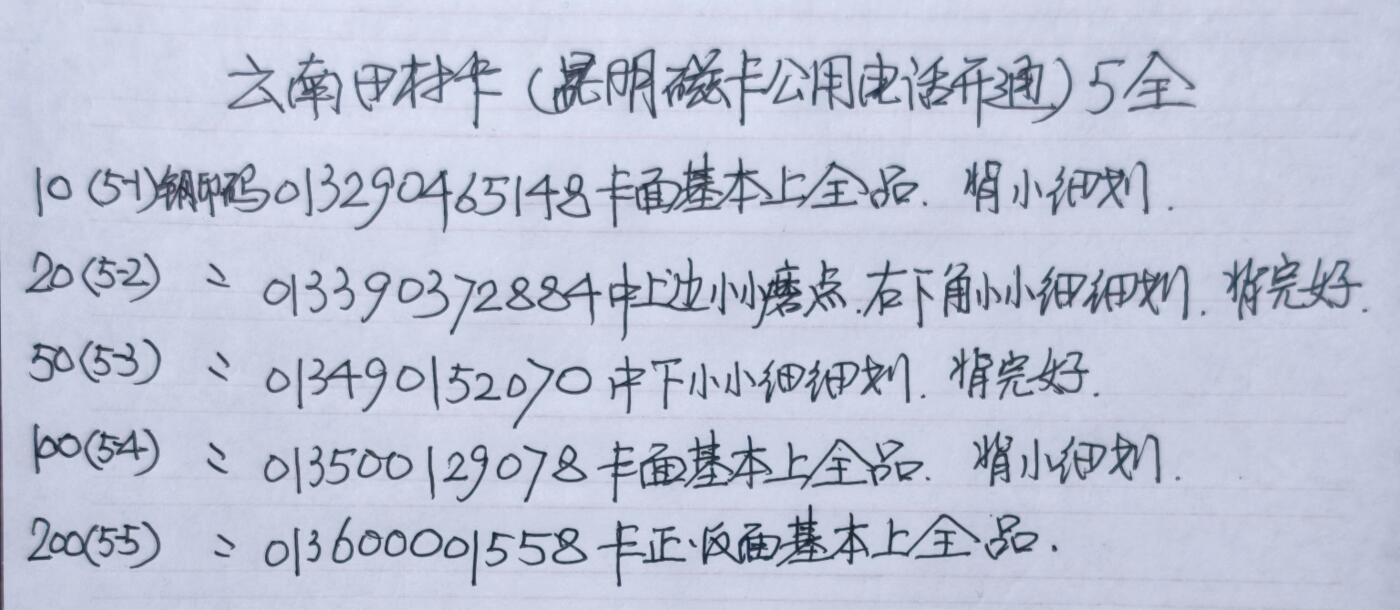 云南田村卡(昆明磁卡公用电话开通)5全
10(5-1)钢印码013290465148卡面基本上全品.背小细划.
20(5-2) 〃 013390372884中上边小小磨点.右下角小小细细划.背完好.
50(5-3) 〃 013490152070中下小小细细划.背完好.
100(5-4) 〃 013500129078卡面基本上全品.背小细划.
200(5-5) 〃 013600001558卡正.反面基本上全品.